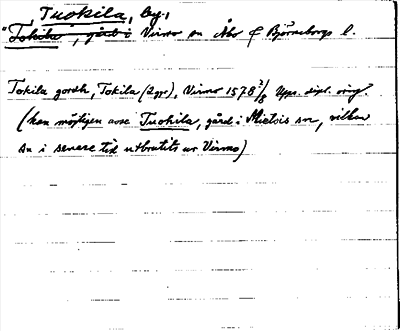 Tuokila, by,
"Tokila", gård i Virmo sn Åbo o Björneborgs l.
Tokila gordh, Tokila (2gr), Virmo 1578 2/8 Upps. dipl. orig.
(kan möjligen avse Tuokila, gård i Mietois sn, vilken
sn i senare tid utbrutits ur Virmo)